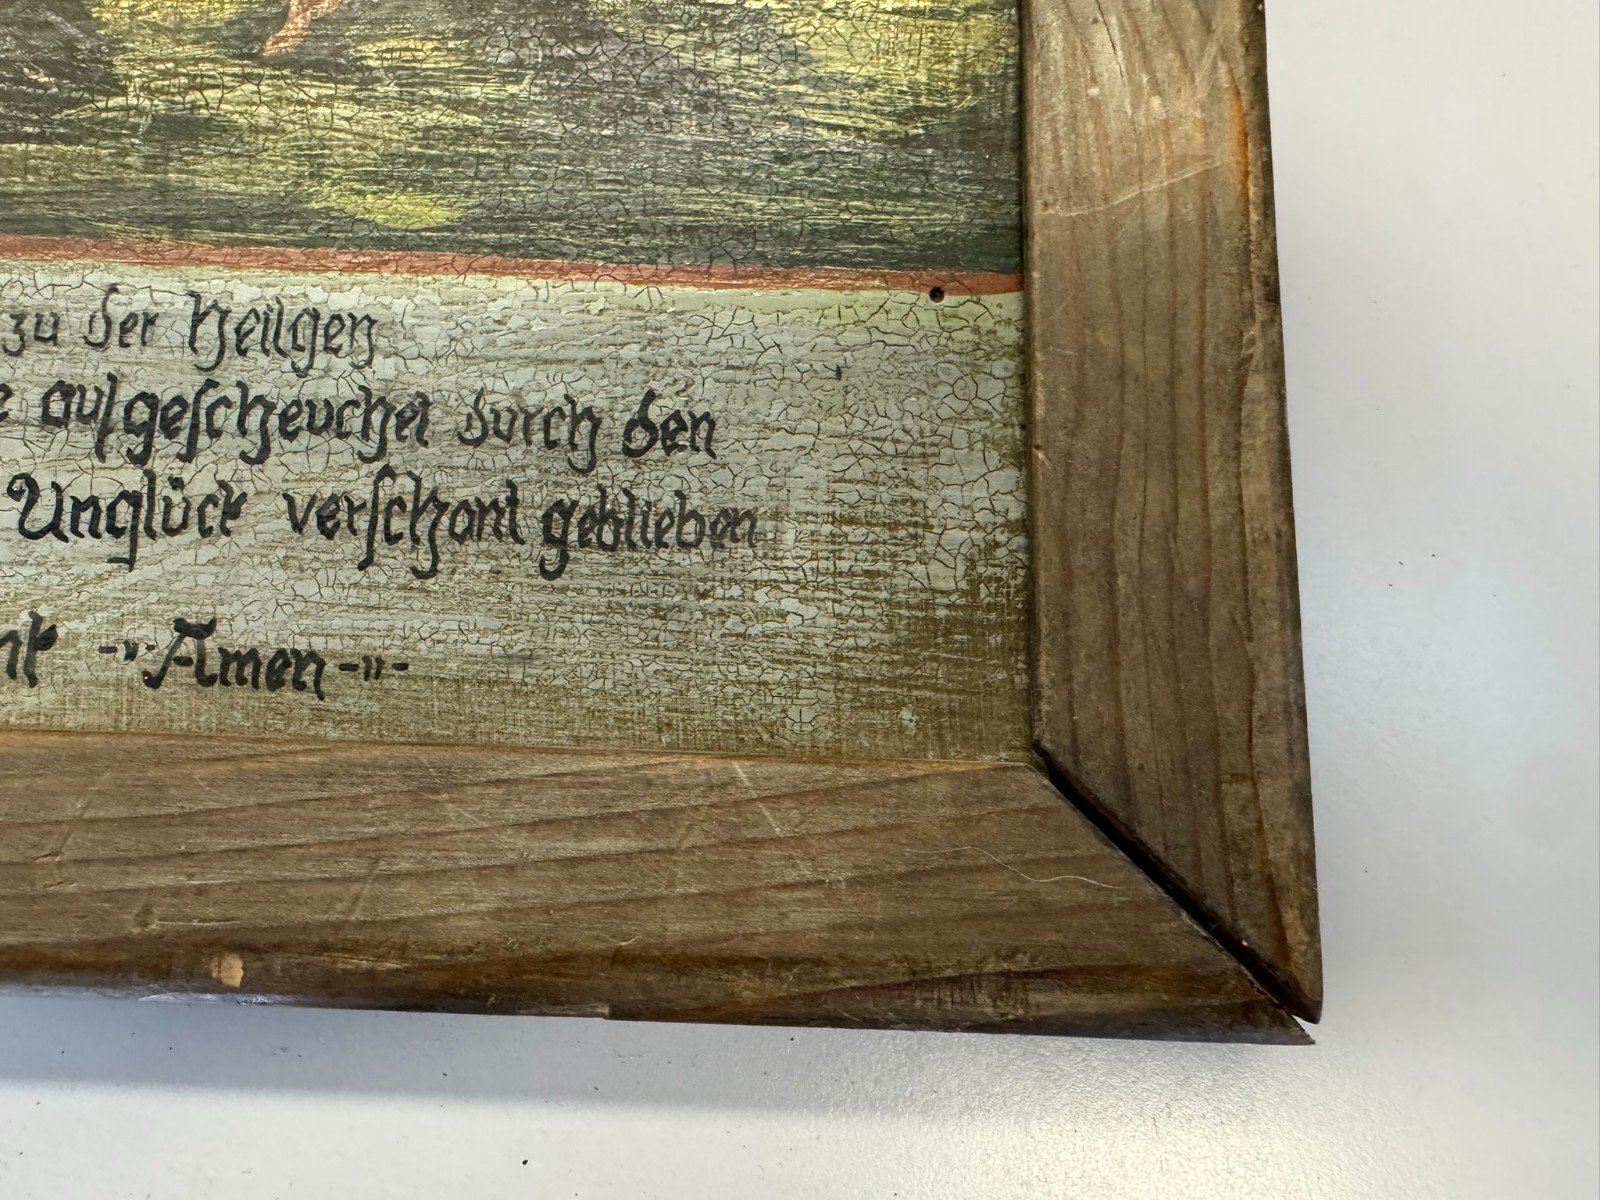 zu der Heilgen
aufgescheuchet durch den
Unglück verschont geblieben
-"-Amen-"-